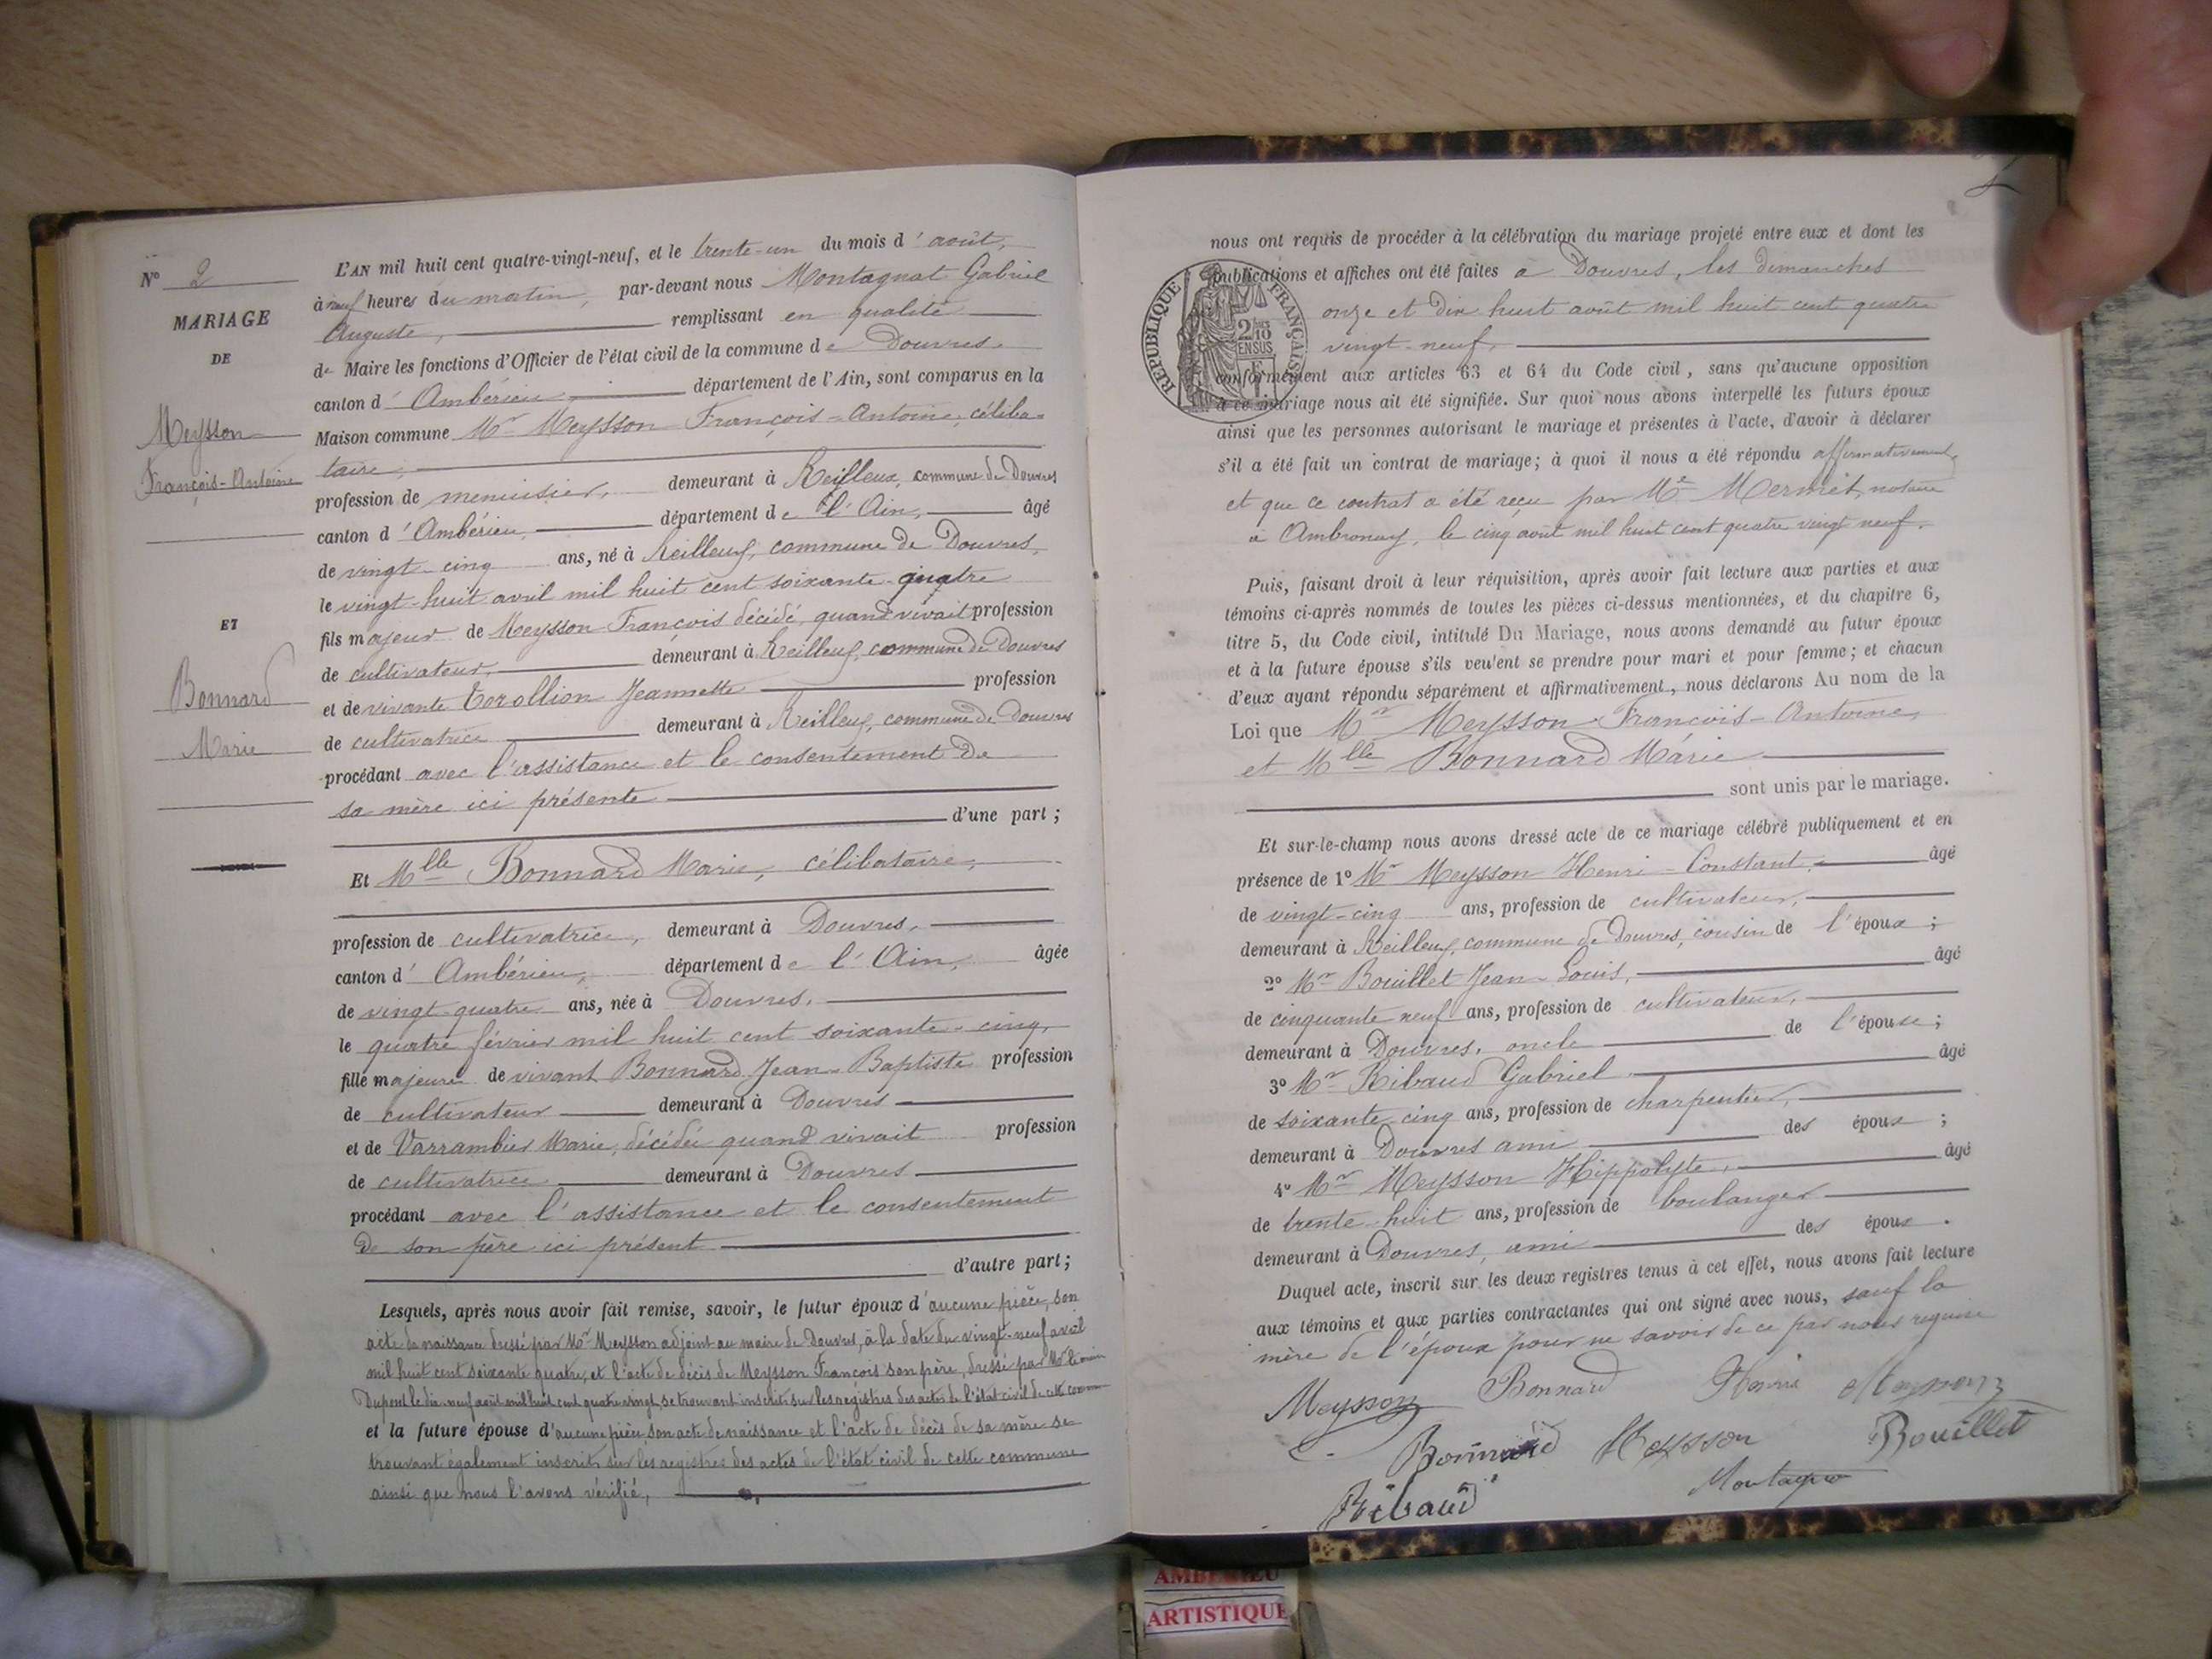 N° 2
MARIAGE
DE
Meysson
François-Antoine
ET
Bonnard
Marie
L'AN mil huit cent quatre-vingt-neuf, et le trente-un du mois d'août,
à neuf heures du matin, par-devant nous Montagnat Gabriel
Auguste, remplissant en qualité
de Maire les fonctions d'Officier de l'état civil de la commune de Douvres.
canton d'Ambérieu département de l'Ain, sont comparus en la
Maison commune Mr Meysson François-Antoine, céliba-
taire,
profession de menuisier, demeurant à Reilleux, commune de Douvres
canton d'Ambérieu, département de l'Ain, âgé
de vingt-cinq ans, né à Reilleux, commune de Douvres,
le vingt-huit avril mil huit cent soixante-quatre
fils majeur de Meysson François décédé, quand vivait profession
de cultivateur, demeurant à Reilleux, commune de Douvres
et de vivante Jeannette profession
de cultivatrice demeurant à Reilleux, commune de Douvres
procédant avec l'assistance et le consentement de
sa mère ici présente
d'une part ;
Et Mlle Bonnard Marie, célibataire,
profession de cultivatrice, demeurant à Douvres,
canton d'Ambérieu, département de l'Ain, âgée
de vingt-quatre ans, née à Douvres,
le quatre février mil huit cent soixante-cinq,
fille majeure de vivant Bonnard Jean-Baptiste profession
de cultivateur demeurant à Douvres
et de Varrambier Marie, décédée quand vivait profession
de cultivatrice demeurant à Douvres
procédant avec l'assistance et le consentement
de son père ici présent
d'autre part;
Lesquels, après nous avoir fait remise, savoir, le futur époux d'aucune pièce, son
acte de naissance dressé par Mr Meysson adjoint au maire de Douvres, à la date du vingt-neuf avril
mil huit cent soixante quatre, et l'acte de décès de Meysson François son père, dressé par Mr le maire
Dupont le dix-neuf août mil huit cent quatre vingt, se trouvant inscrits sur les registres des actes de l'état civil de cette commune
et la future épouse d'aucune pièce, son acte de naissance et l'acte de décès de sa mère se
trouvant également inscrits sur les registres des actes de l'état civil de cette commune
ainsi que nous l'avons vérifié,
nous ont requis de procéder à la célébration du mariage projeté entre eux et dont les
publications et affiches ont été faites à Douvres, les dimanches
onze et dix huit août mil huit cent quatre
vingt-neuf,
RÉPUBLIQUE FRANÇAISE
2/10
EN SUS
conformément aux articles 63 et 64 du Code civil, sans qu'aucune opposition
à ce mariage nous ait été signifiée. Sur quoi nous avons interpellé les futurs époux
ainsi que les personnes autorisant le mariage et présentes à l'acte, d'avoir à déclarer
s'il a été fait un contrat de mariage; à quoi il nous a été répondu affirmativement,
et que ce contrat a été reçu par Me Mermet, notaire
à Ambronay, le cinq août mil huit cent quatre vingt neuf.
Puis, faisant droit à leur réquisition, après avoir fait lecture aux parties et aux
témoins ci-après nommés de toutes les pièces ci-dessus mentionnées, et du chapitre 6,
titre 5, du Code civil, intitulé Du Mariage, nous avons demandé au futur époux
et à la future épouse s'ils veulent se prendre pour mari et pour femme; et chacun
d'eux ayant répondu séparément et affirmativement, nous déclarons Au nom de la
Loi que Mr Meysson François-Antoine,
et Mlle Bonnard Marie
sont unis par le mariage.
Et sur-le-champ nous avons dressé acte de ce mariage célébré publiquement et en
présence de 1° Mr Meysson Henri-Constant, âgé
de vingt-cinq ans, profession de cultivateur,
demeurant à Reilleux, commune de Douvres, cousin de l'époux ;
2° Mr Bouillet Jean-Louis, âgé
de cinquante neuf ans, profession de cultivateur,
demeurant à Douvres, oncle de l'épouse ;
3° Mr Ribaud Gabriel âgé
de soixante-cinq ans, profession de charpentier,
demeurant à Douvres ami des époux ;
4° Mr Meysson Hippolyte, âgé
de trente-huit ans, profession de boulanger
demeurant à Douvres, ami des époux .
Duquel acte, inscrit sur les deux registres tenus à cet effet, nous avons fait lecture
aux témoins et aux parties contractantes qui ont signé avec nous, sauf la
mère de l'époux pour ne savoir de ce par nous requise
Meysson Bonnard Marie Meysson
Bonnard Meysson Bouillet
Ribaud Montagnat
AMBÉRIEU
ARTISTIQUE